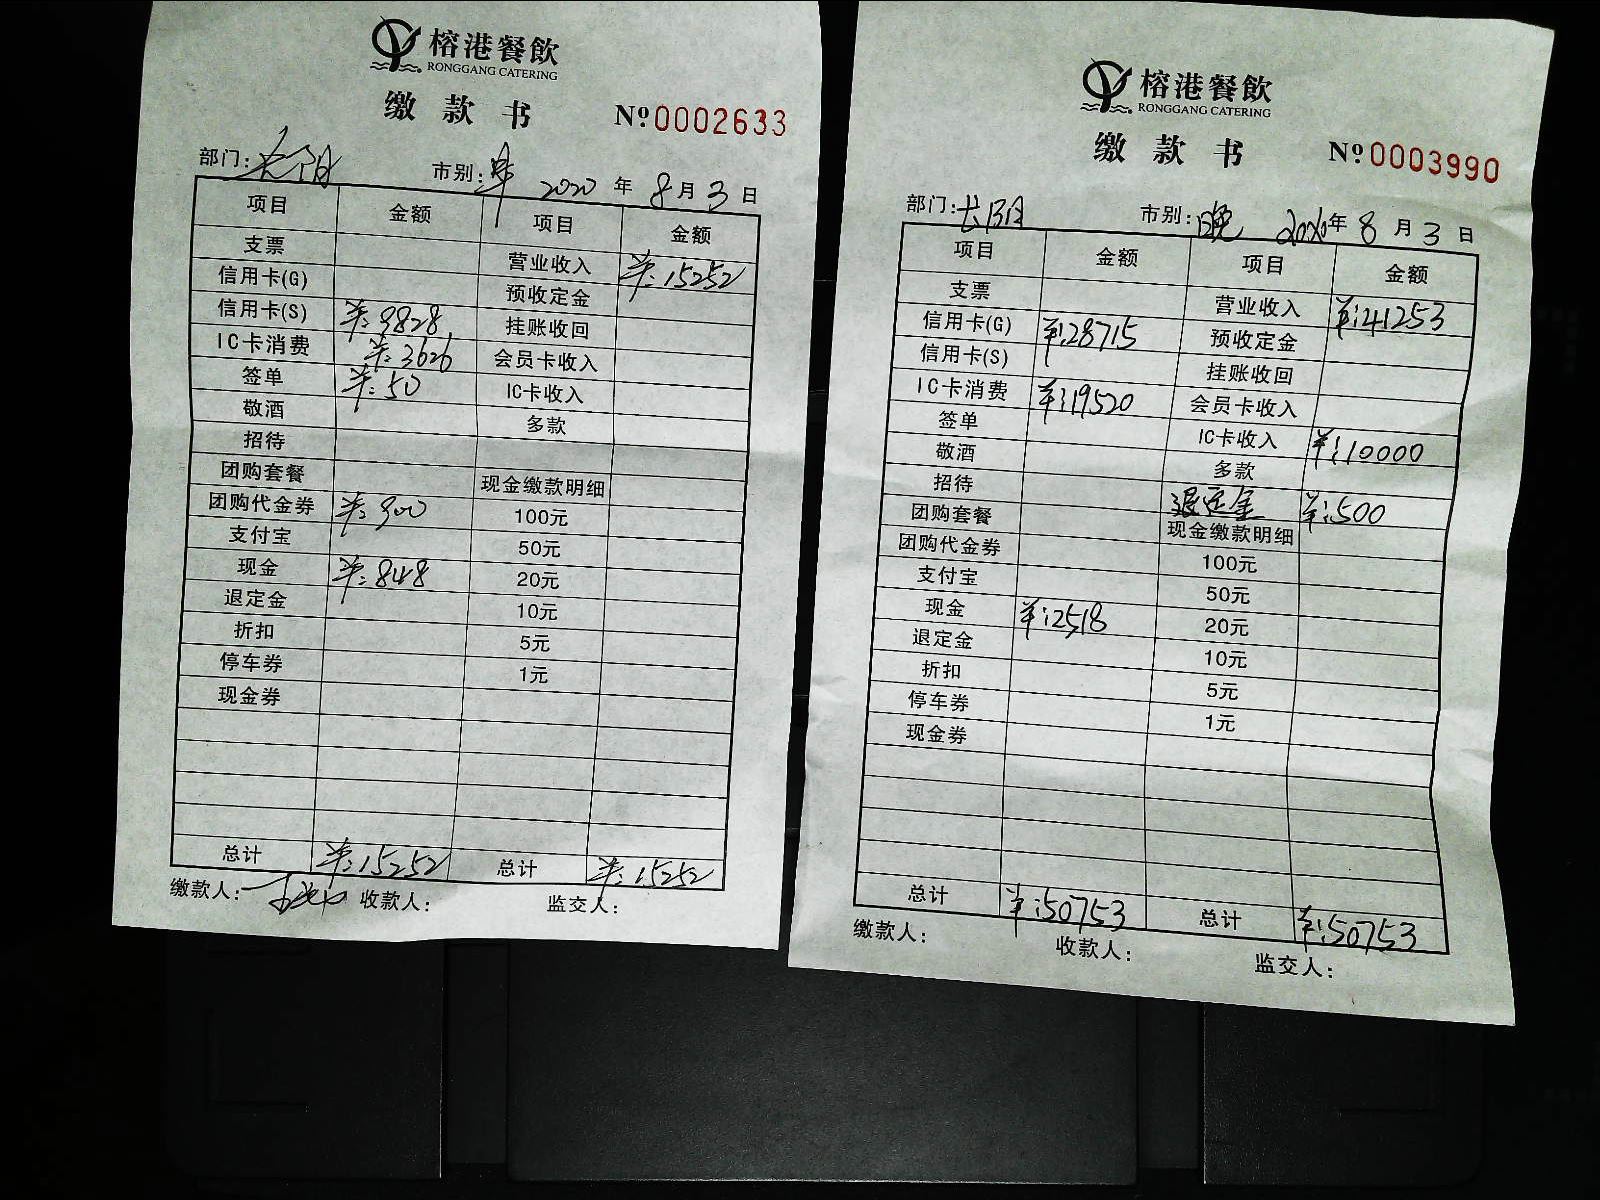 榕港餐飲
RONGGANG CATERING
缴款书 Nº0002633
部门: 市别:早 2020年8月3日
项目 金额 项目 金额
支票 营业收入 ¥:15252
信用卡(G) 预收定金
信用卡(S) ¥:9828 挂账收回
IC卡消费 ¥:3626 会员卡收入
签单 ¥:50 IC卡收入
敬酒 多款
招待
团购套餐 现金缴款明细
团购代金券 ¥:900 100元
支付宝 50元
现金 ¥:848 20元
退定金 10元
折扣 5元
停车券 1元
现金券
总计 ¥:15252 总计 ¥:15252
缴款人: 收款人: 监交人:
榕港餐飲
RONGGANG CATERING
缴款书 Nº0003990
部门:长阳 市别:晚 2020年8月3日
项目 金额 项目 金额
支票 营业收入 ¥:41253
信用卡(G) ¥:28715 预收定金
信用卡(S) 挂账收回
IC卡消费 ¥:19520 会员卡收入
签单 IC卡收入 ¥:10000
敬酒 多款
招待 退定金 ¥:500
团购套餐 现金缴款明细
团购代金券 100元
支付宝 50元
现金 ¥:2518 20元
退定金 10元
折扣 5元
停车券 1元
现金券
总计 ¥:50753 总计 ¥:50753
缴款人: 收款人: 监交人: